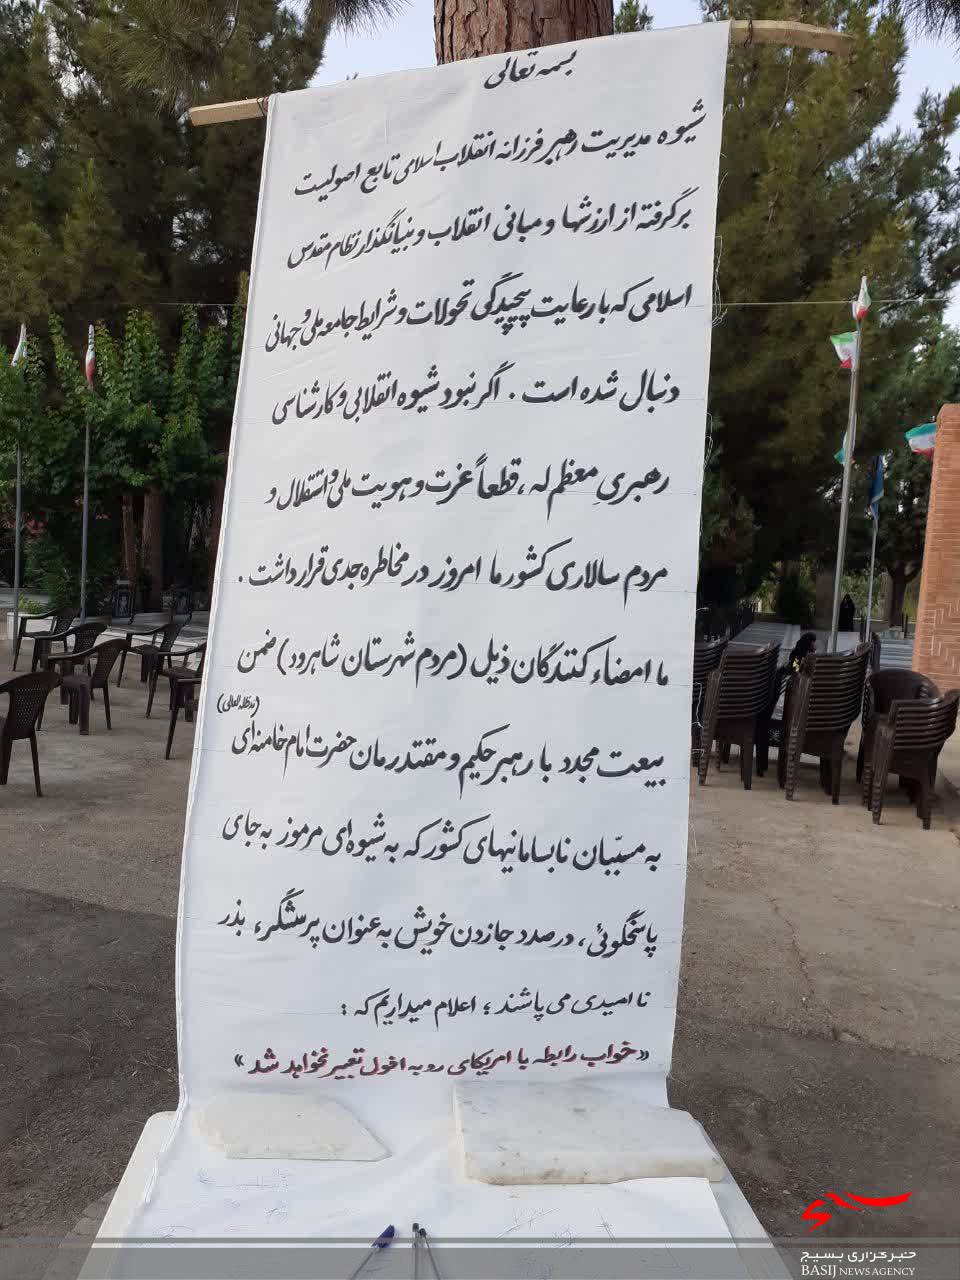 بسمه تعالی
شیوه مدیریت رهبر فرزانه انقلاب اسلامی تابع اصولیست
برگرفته از ارزشها و مبانی انقلاب و بنیانگذار نظام مقدس
اسلامی که با رعایت پیچیدگی تحولات و شرایط جامعه ملی و جهانی
دنبال شده است . اگر نبود شیوه انقلابی و کارشناسی
رهبری معظم له ، قطعاً عزت و هویت ملی و استقلال و
مردم سالاری کشور ما امروز در مخاطره جدی قرار داشت .
ما امضاء کنندگان ذیل (مردم شهرستان شاهرود) ضمن
بیعت مجدد با رهبر حکیم و مقتدرمان حضرت امام خامنه ای (مدظله العالی)
به مسبّبان نابسامانیهای کشور که به شیوه ای مرموز به جای
پاسخگوئی ، درصدد جازدن خویش به عنوان پرسشگر، بذر
نا امیدی می پاشند ؛ اعلام میداریم که :
«خواب رابطه با امریکای رو به افول تعبیر نخواهد شد»
بسیج
خبرگزاری بسیج
BASIJ NEWS AGENCY